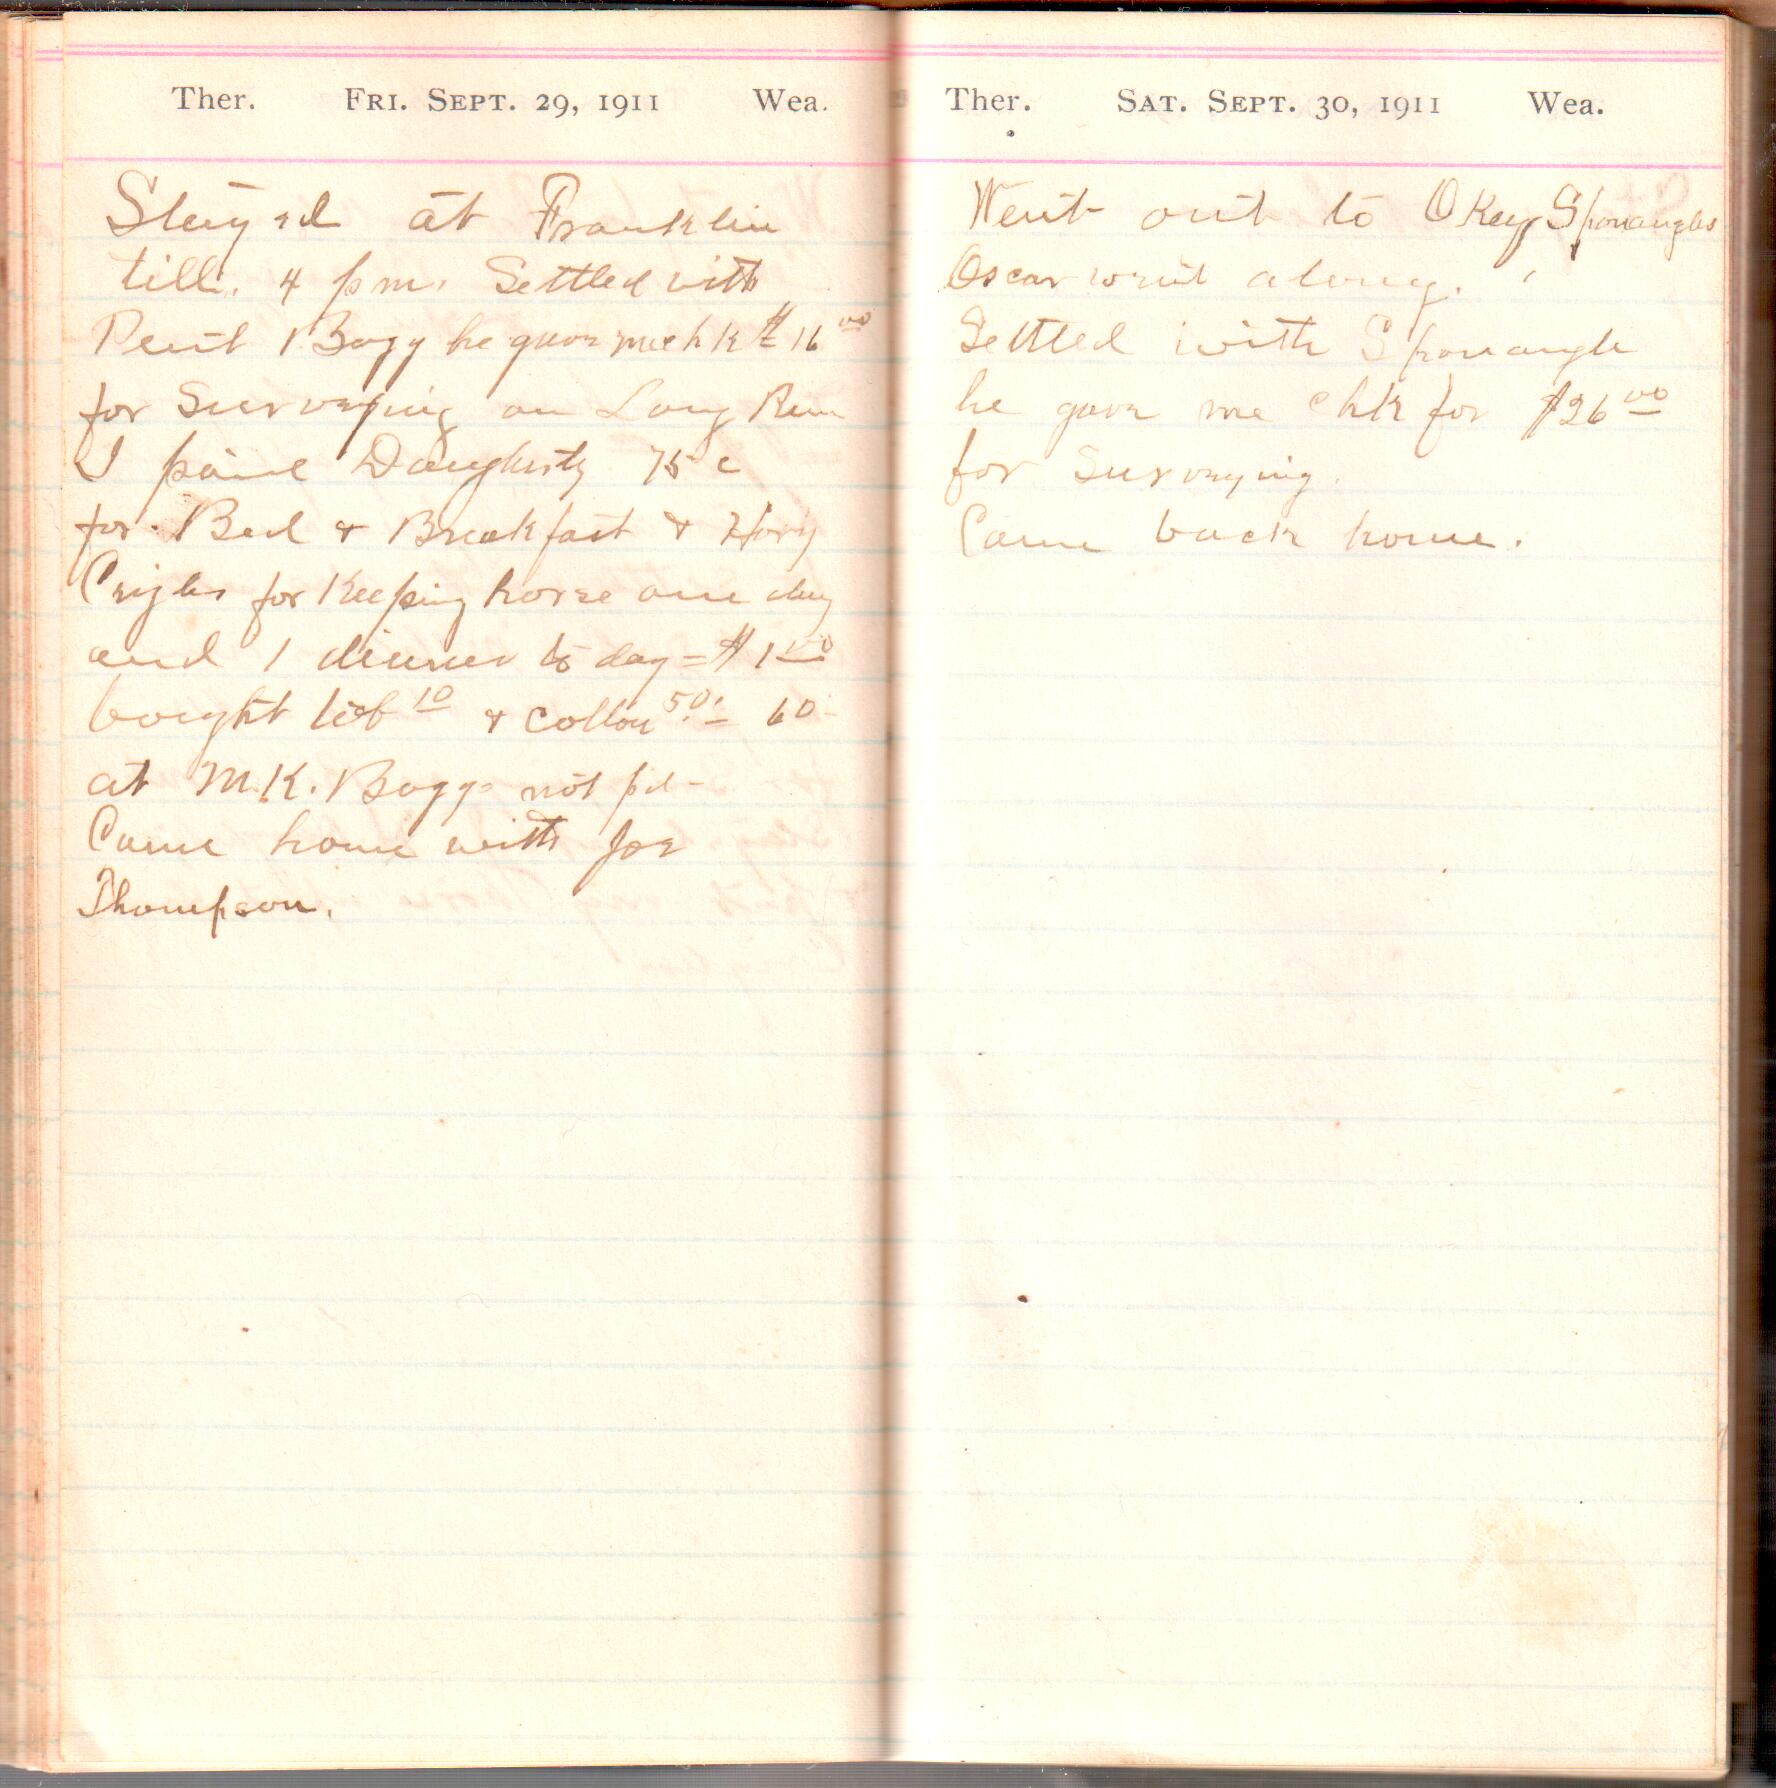 Ther. FRI. SEPT. 29, 1911 Wea.
Stayed at Franklin
till. 4 pm. Settled with
Pent Bogg he gave me chk $16 00
for Surveying on Long Run
I paid Daugherty 75 c
for Bed & Breakfast &
for Keeping horse one day
and 1 dinner to day = $1 50
bought 10 & 50 = 60
at M.K. Boggs not pd -
Came home with Joe
Thompson.
Ther. SAT. SEPT. 30, 1911 Wea.
Went out to OKey Sponaugles
Oscar went along.
Settled with Sponaugle
he gave me chk for $26 00
for Surveying.
Came back home.